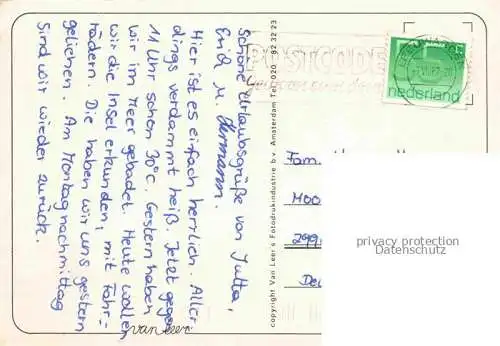 Schöne Urlaubsgrüße von Jutta,
Erid u. Hermann.
Hier ist es einfach herrlich. Aller
dings verdammt heiß. Jetzt gegen
11 Uhr schon 30°C. Gestern haben
wir im Meer gebadet. Heute wollen
wir die Insel erkunden, mit Fahr-
rädern. Die haben wir uns gestern
geliehen. Am Montagnachmittag
sind wir wieder zurück.
van Leer
copyright Van Leer's Fotodrukindustrie b.v. Amsterdam Tel. 020 - 92 32 23
POSTCODE
nederland
Fam.
Moo
299
De
privacy protection
Datenschutz